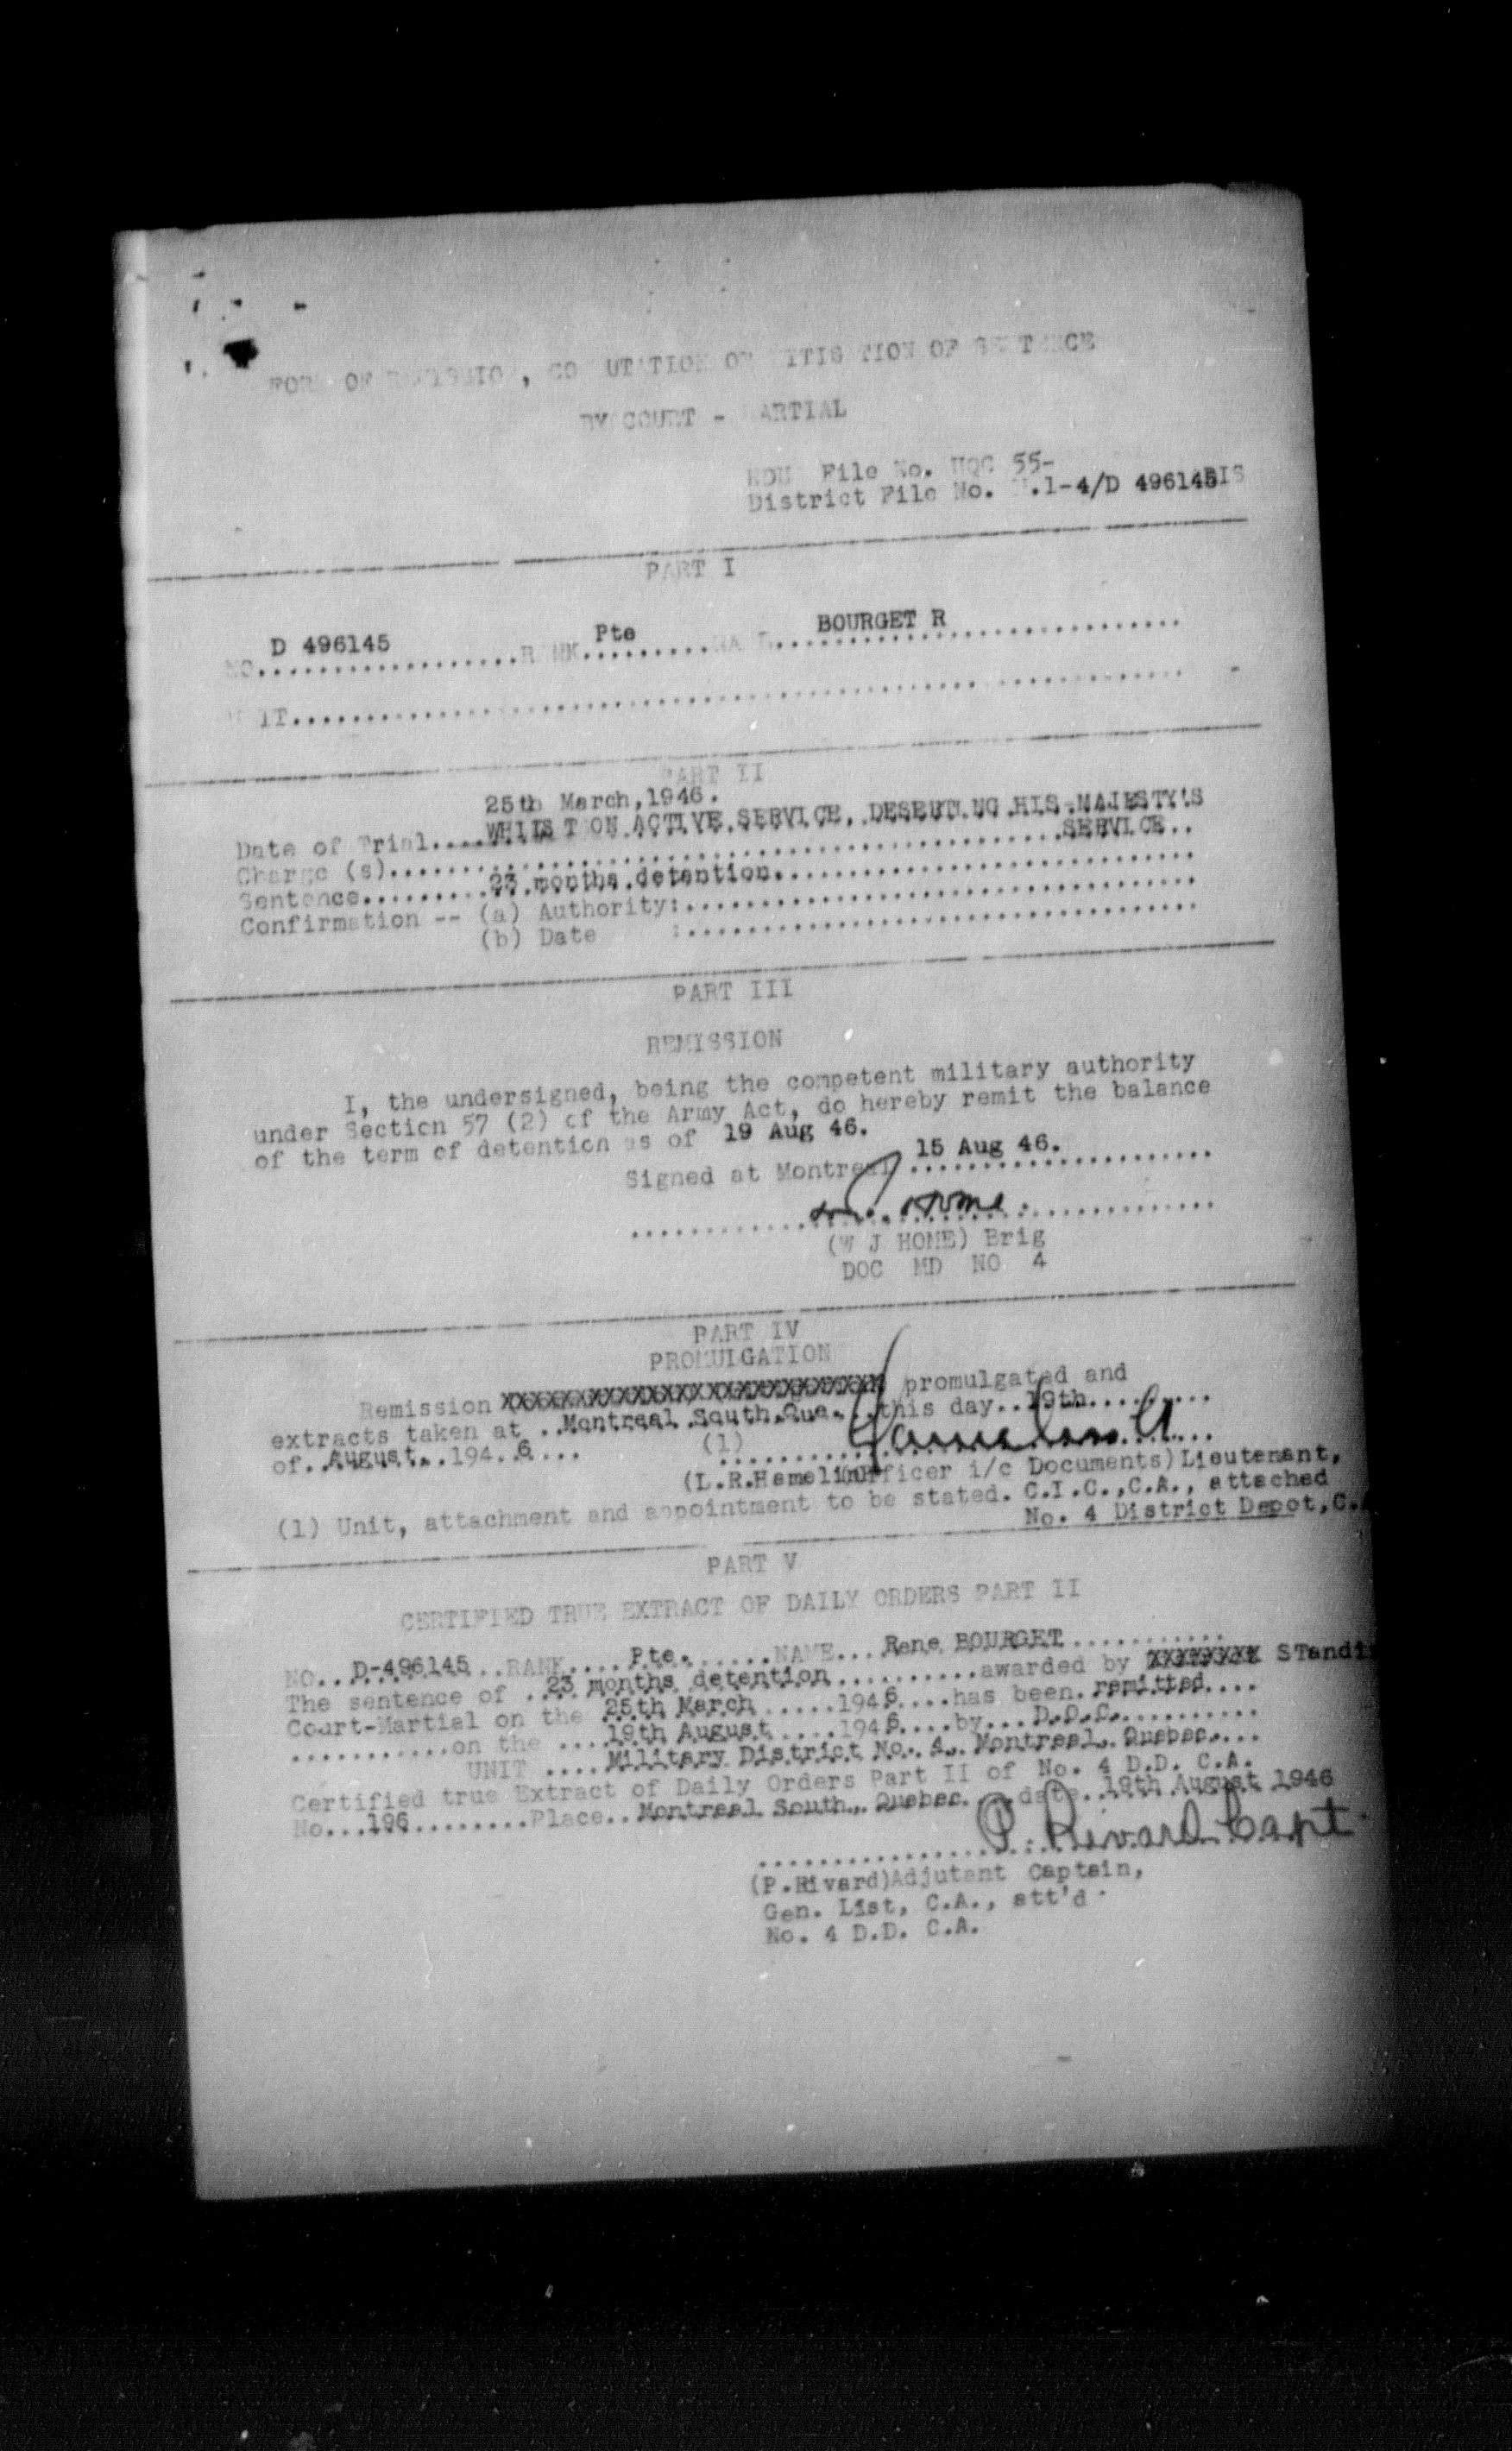 FORM OF REMISSION, COMMUTATION OR MITIGATION OF SENTENCE
BY COURT - MARTIAL
File No. HQC 55-
District File No. .1-4/D 496145
PART I
NO. D 496145 RANK Pte NAME BOURGET R
UNIT
PART II
Date of Trial 25th March, 1946.
Charge (s) WHILST ON ACTIVE SERVICE, DESERTING HIS MAJESTY'S
SERVICE
Sentence 23 months detention
Confirmation -- (a) Authority:
(b) Date :
PART III
REMISSION
I, the undersigned, being the competent military authority
under Section 57 (2) of the Army Act, do hereby remit the balance
of the term of detention as of 19 Aug 46.
Signed at Montreal 15 Aug 46.
W. J. Home
(W J HOME) Brig
DOC MD NO 4
PART IV
PROMULGATION
Remission promulgated and
extracts taken at Montreal South, Que. this day 19th
of August 194 6 (1) Hamelin Lt
(L.R.Hamelin Officer i/c Documents) Lieutenant,
(1) Unit, attachment and appointment to be stated. C.I.C.,C.A., attached
No. 4 District Depot, C.
PART V
CERTIFIED TRUE EXTRACT OF DAILY ORDERS PART II
NO. D-496145 RANK Pte. NAME Rene BOURGET
The sentence of 23 months detention awarded by STandi
Court-Martial on the 25th March 1946 has been remitted
on the 19th August 1946 by D.O.C.
UNIT Military District No. 4, Montreal, Quebec.
Certified true Extract of Daily Orders Part II of No. 4 D.D. C.A.
No. 196 Place Montreal South, Quebec date 19th August 1946
P. Rivard Capt
(P.Rivard) Adjutant Captain,
Gen. List, C.A., att'd
No. 4 D.D. C.A.